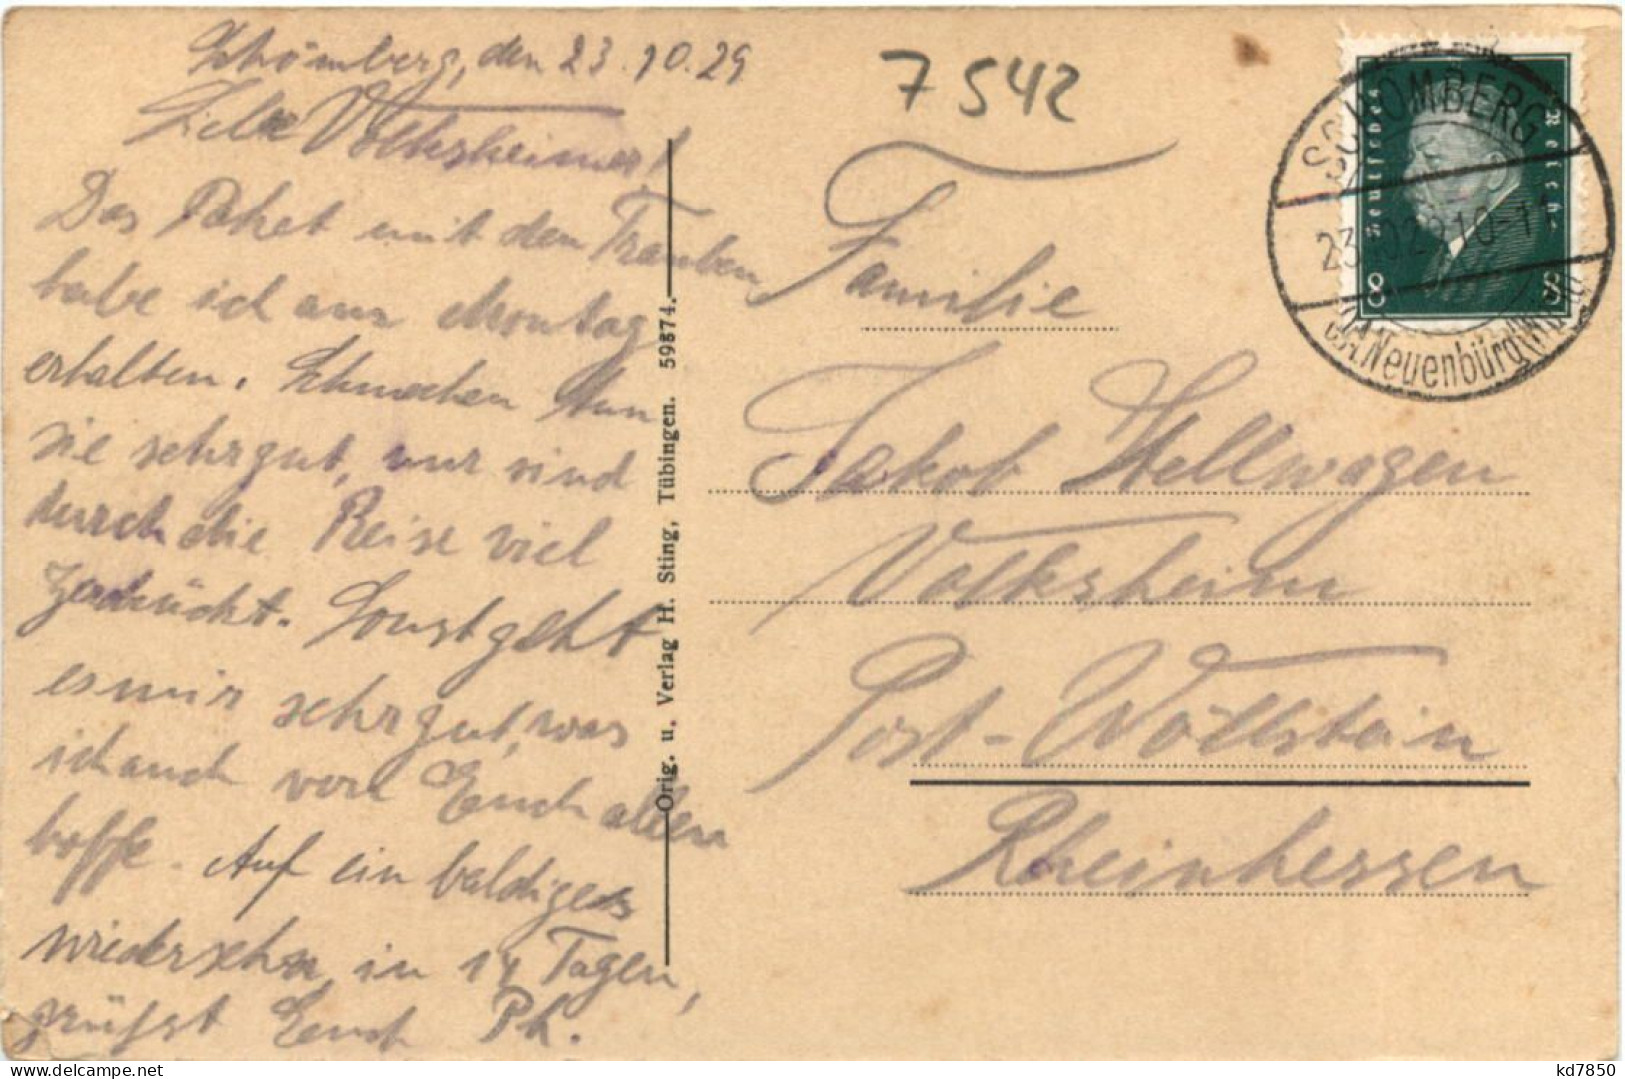 Schömberg, den 23.10.29
Liebe Volksheimer!
Das Paket mit den Trauben
habe ich am Montag
erhalten. Schmecken tun
sie sehr gut, nur sind
durch die Reise viel
zerdrückt. Sonst geht
es mir sehr gut, was
ich auch von Euch allen
hoffe. Auf ein baldiges
wiedersehn, in 14 Tagen,
grüßt Euch Ph.
Orig. u. Verlag H. Sting, Tübingen. 59874.
7542
Familie
Jakob Hellwagen
Volksheim
Post-Wöllstein
Rheinhessen
Deutsches Reich
8 8
SCHÖMBERG
23.10.29.10-11
OA. Neuenbürg (Württ)
kd7850